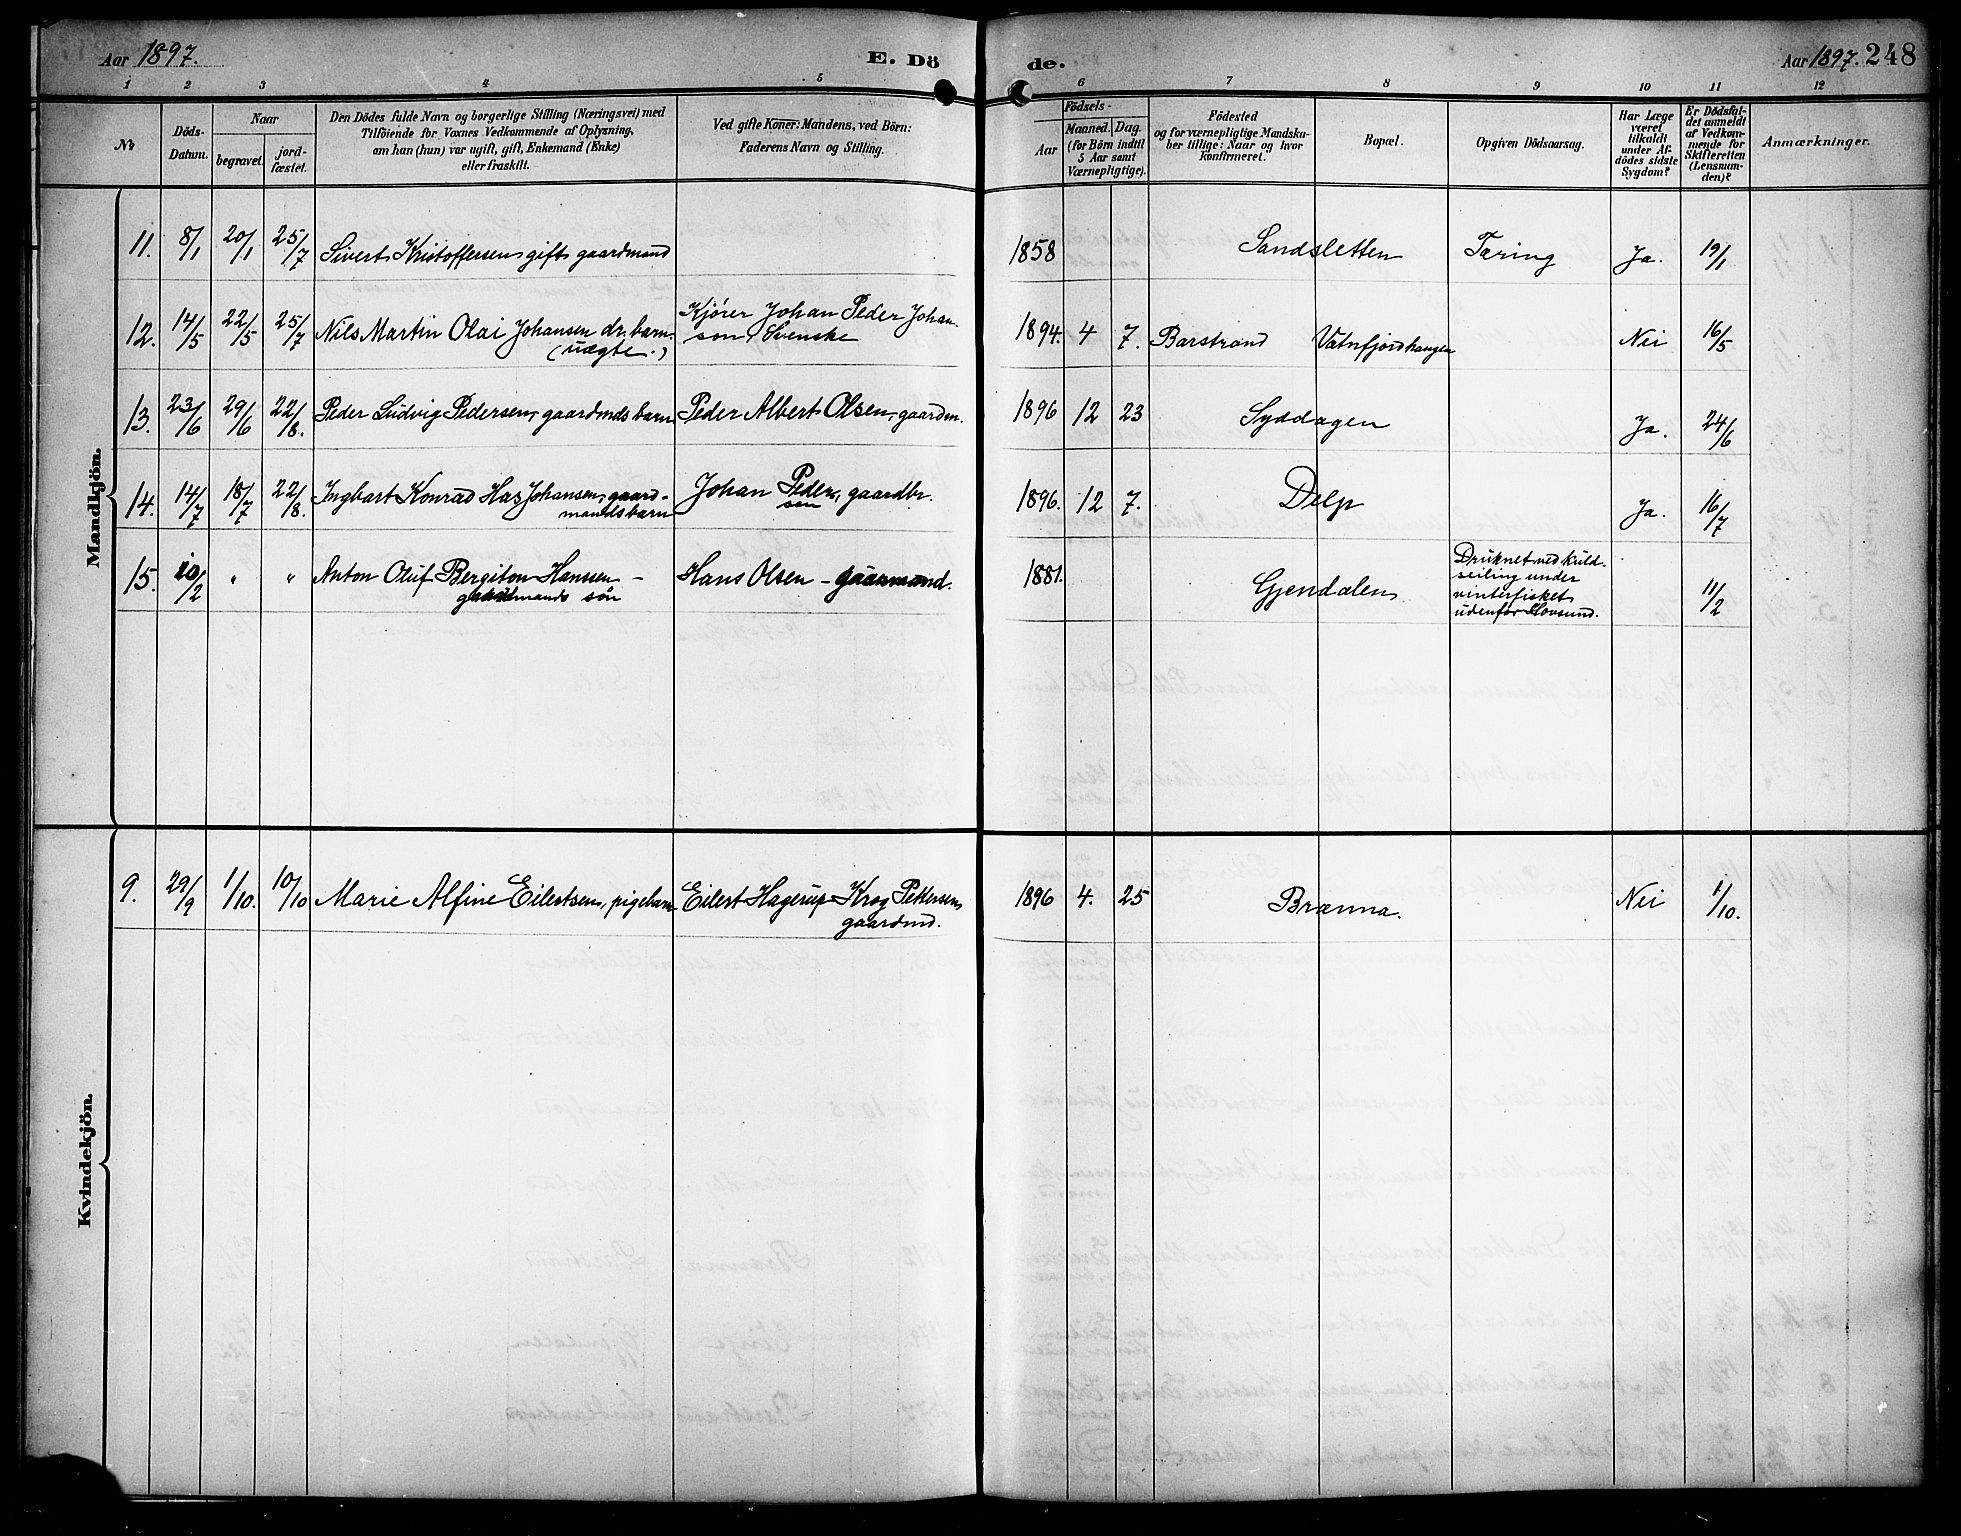 Aar 1897. E. Dö de. Aar 1897. 248
1 2 3 4 5 6 7 8 9 10 11 12
No
Döds-Datum.
Naar
begravet.
jord-fæstet.
Den Dödes fulde Navn og borgerlige Stilling (Næringsvei) med
Tilföiende for Voxnes Vedkommende af Oplysning,
om han (hun) var ugift, gift, Enkemand (Enke)
eller fraskilt.
Ved gifte Koner: Mandens, ved Börn:
Faderens Navn og Stilling.
Födsels-
Aar
Maaned. Dag.
(for Börn indtil
5 Aar samt
Værnepligtige).
Födested
og for værnepligtige Mandska-
ber tillige: Naar og hvor
konfirmeret.
Bopæl.
Opgiven Dödsaarsag.
Har Læge
været
tilkaldt
under Af-
dödes sidste
Sygdom?
Er Dödsfal-
det anmeldt
af Vedkom-
mende for
Skifteretten
(Lensman-
den)?
Anmærkninger.
Mandkjön.
11. 8/1 20/1 25/7 Sivert Kristoffersen, gift gaardmand 1858 Sandsletten Tæring Ja. 19/1
12. 14/5 22/5 25/7 Nils Martin Olai Johansen dr. barn. Kjører Johan Peder Johan- 1894. 4 7. Barstrand Vatnfjordhaugen Nei 16/5
(uægte.) son Svenske
13. 23/6 29/6 22/8. Peder Ludvig Pedersen, gaardmds barn Peder Albert Olsen, gaardm. 1896 12 23 Syddagen Ja. 24/6
14. 14/7 18/7 22/8. Ingbart Konrad Johansen, gaard- Johan Peder, gaardbr. 1896. 12 7. Delp Ja. 16/7
mandsbarn sen
15. 10/2 " " Anton Oluf Bergiton Hanssen - Hans Olsen - gaarmand. 1881. Gjendalen Druknet ved Kuld- 11/2
gaardmands søn seiling under
vinterfisket
udenfor Hovsund.
Kvindekjön.
9. 29/9 1/10. 10/10 Marie Alfine Eilertsen, pigebarn Eilert Hagerup Krog Pettersen 1896 4. 25 Brænna. Nei 1/10.
gaardmd.